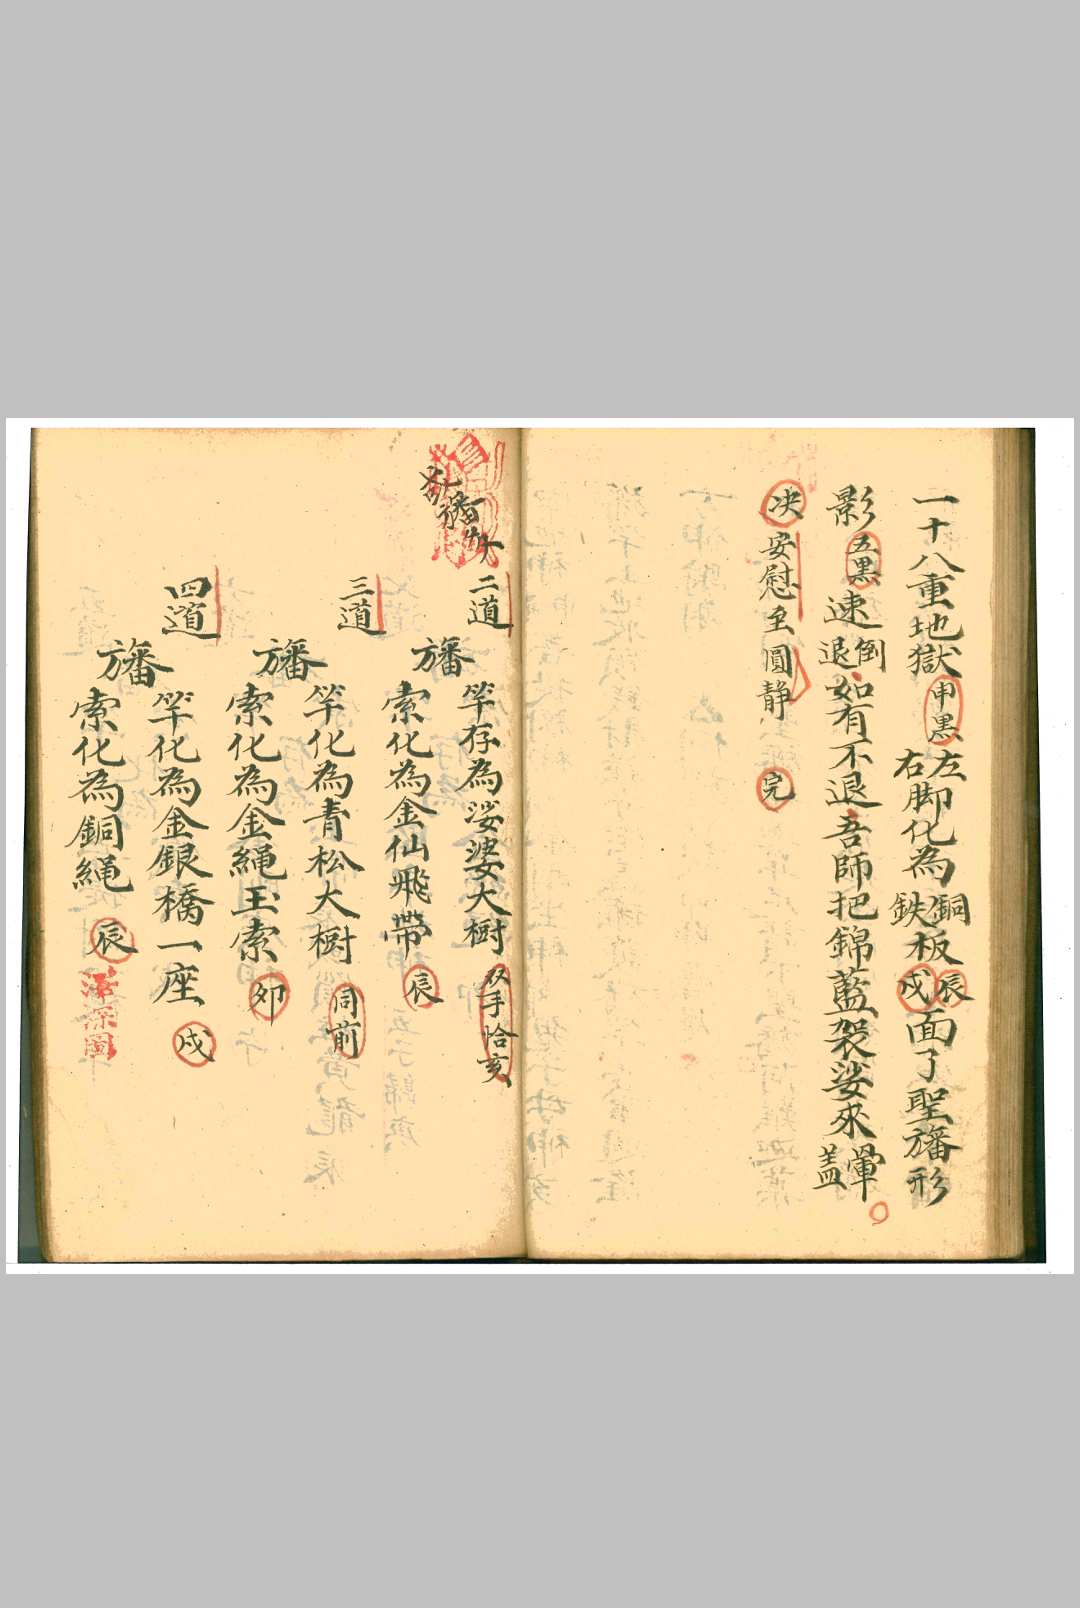 一十八重地獄申黑左右脚化為銅鉄板辰戍面了聖旛形
影五黑速倒退如有不退吾師把錦藍袈娑來暈蓋
决安慰至圓静完
二道
旛
竿存為娑婆大樹双手恰亥
索化為金仙飛帶辰
三道
旛
竿化為青松大樹同前
索化為金繩玉索卯
四道
旛
竿化為金銀橋一座戍
索化為銅繩辰